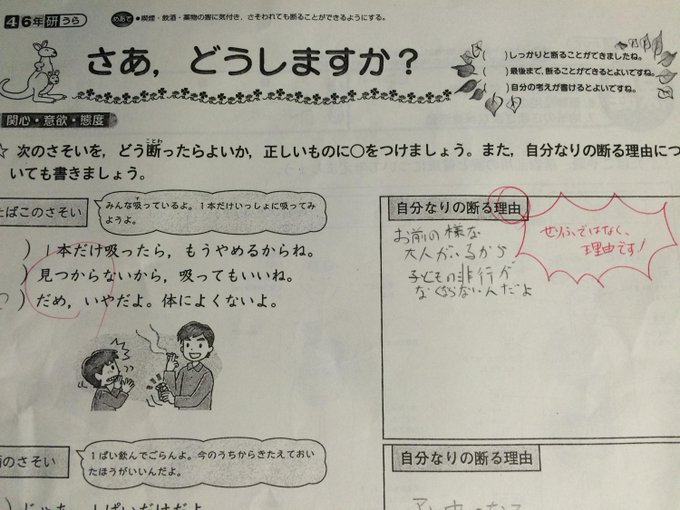 4 6年 研 うら
めあて ●喫煙・飲酒・薬物の害に気付き，さそわれても断ることができるようにする。
さあ，どうしますか？
(　　)しっかりと断ることができましたね。
(　　)最後まで，断ることができるとよいですね。
(　　)自分の考えが書けるとよいですね。
関心・意欲・態度
☆ 次のさそいを，どう断ったらよいか，正しいものに○をつけましょう。また，自分なりの断る理由につ
ことわ
いても書きましょう。
たばこのさそい
みんな吸っているよ。1本だけいっしょに吸ってみ
す
ようよ。
) 1本だけ吸ったら，もうやめるからね。
) 見つからないから，吸ってもいいね。
) だめ，いやだよ。体によくないよ。
自分なりの断る理由
お前の様な
大人がいるから
子どもの非行が
なくならないんだよ
せりふではなく、
理由です!
酒のさそい
1ぱい飲んでごらんよ。今のうちからきたえておい
たほうがいいんだよ。
自分なりの断る理由
) じゃあ，1ぱいだけだよ